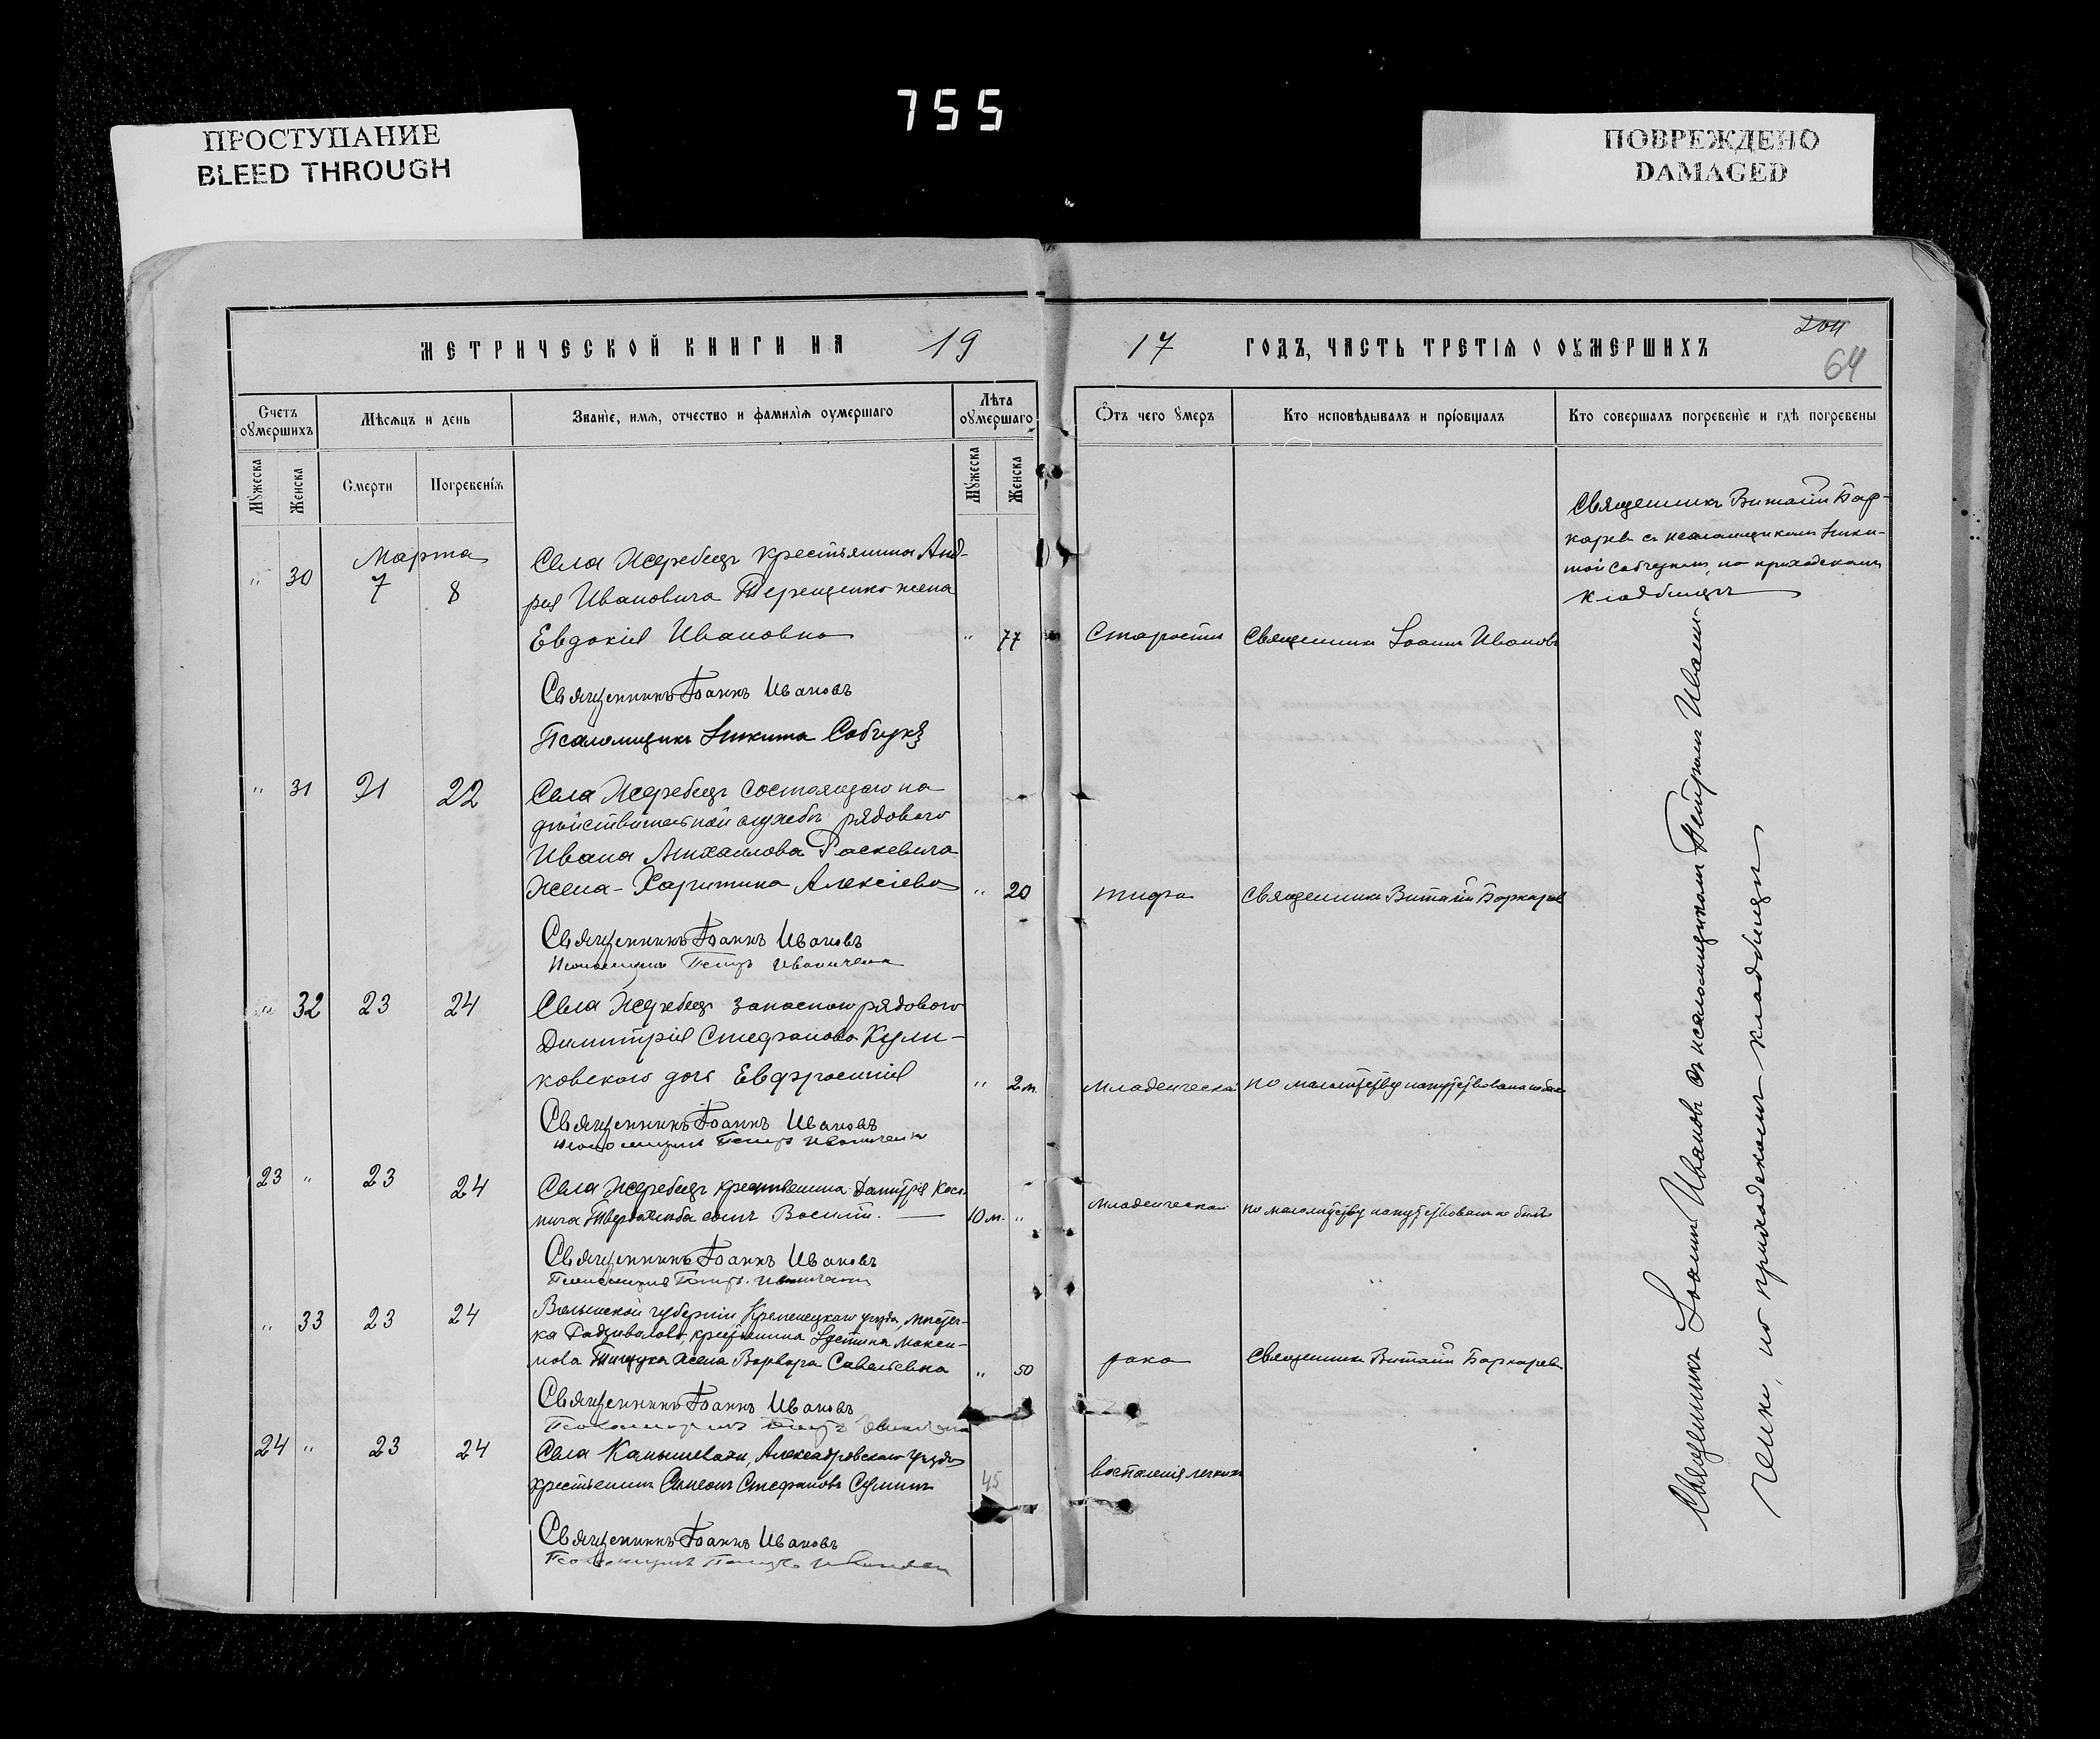 755
ПРОСТУПАНИЕ
BLEED THROUGH
ПОВРЕЖДЕНО
DAMAGED
МЕТРИЧЕСКОЙ КНИГИ НА 19 17 ГОДЪ, ЧАСТЬ ТРЕТІЯ О ОУМЕРШИХЪ
204
64
Счетъ оумершихъ
Мѣсяцъ и день
Званіе, имя, отчество и фамилія оумершаго
Лѣта оумершаго
Отъ чего умеръ
Кто исповѣдывалъ и пріобщалъ
Кто совершалъ погребеніе и гдѣ погребены
Мужеска
Женска
Смерти
Погребенія
Мужеска
Женска
Марта
" 30 7 8
Села Жеребецъ крестьянина Анд-
рея Ивановича Терещенко жена
Евдокія Ивановна " 77 Старости Священникъ Іоаннъ Ивановъ
Священникъ Виталій Бар-
каревъ съ псаломщикомъ Ники-
той Собчукомъ, на приходскомъ
кладбищѣ
Священникъ Іоаннъ Ивановъ
Псаломщикъ Никита Собчукъ
" 31 21 22
Села Жеребецъ состоящаго на
дѣйствительной службѣ рядового
Ивана Михаилова Раскевича
жена - Харитина Алексіева " 20 тифа Священникъ Виталій Баркаревъ
Священникъ Іоаннъ Ивановъ
Псаломщикъ Петръ Иваниченко
" 32 23 24
Села Жеребецъ запасного рядового
Димитрія Стефанова Кули-
ковского дочь Евфросинія " 2 м. Младенческой по малолѣтству напутствована не была
Священникъ Іоаннъ Ивановъ
Псаломщикъ Петръ Иваниченко
23 " 23 24
Села Жеребецъ крестьянина Димитрія Косм-
ича Твердохлѣба сынъ Василій. 10 м. " Младенческой по малолѣтству напутствованъ не былъ
Священникъ Іоаннъ Ивановъ
Псаломщикъ Петръ Иваниченко
" 33 23 24
Волынской губерніи, Кременецкаго уѣзда, мѣстеч-
ка Радзивилова, крестьянина Устина Макси-
мова жена Варвара Савельевна " 50 рака Священникъ Виталій Баркаревъ
Священникъ Іоаннъ Ивановъ
Псаломщикъ Петръ Иваниченко
24 " 23 24
Села Камышевахи, Александровскаго уѣзда
крестьянинъ Симеонъ Стефановъ 45 воспаленія легкихъ
Священникъ Іоаннъ Ивановъ
Псаломщикъ Петръ Иваниченко
Священникъ Іоаннъ Ивановъ съ псаломщикомъ Петромъ Ивани-
ченко, на приходскомъ кладбищѣ